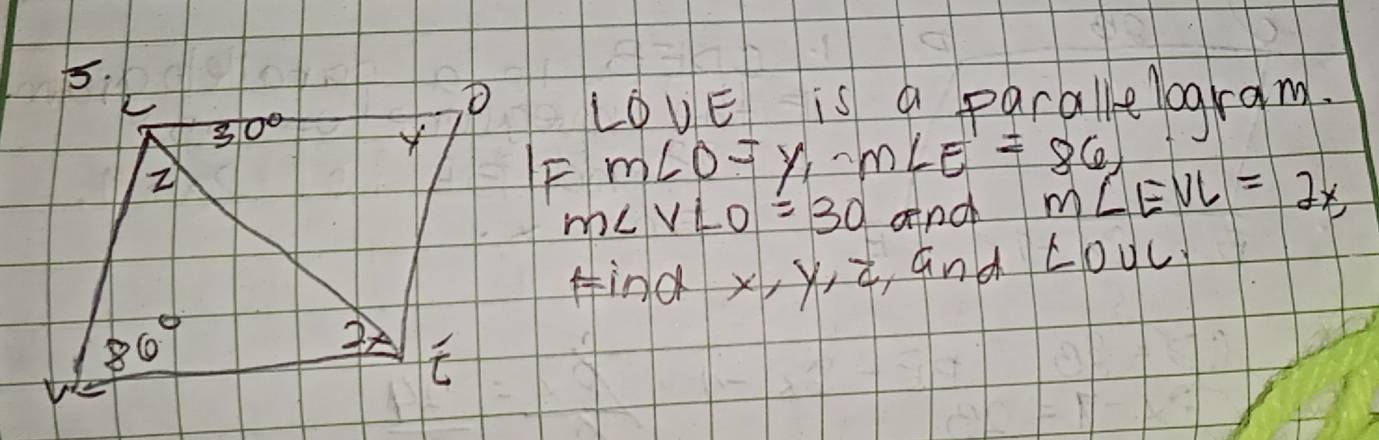 5.
L 30° y O
z
86° 2x E
V
LOVE is a parallelogram.
IF m∠O = y, m∠E = 86,
m∠VLO = 30 and m∠EVL = 2x,
find x, y, z, and ∠OVL.